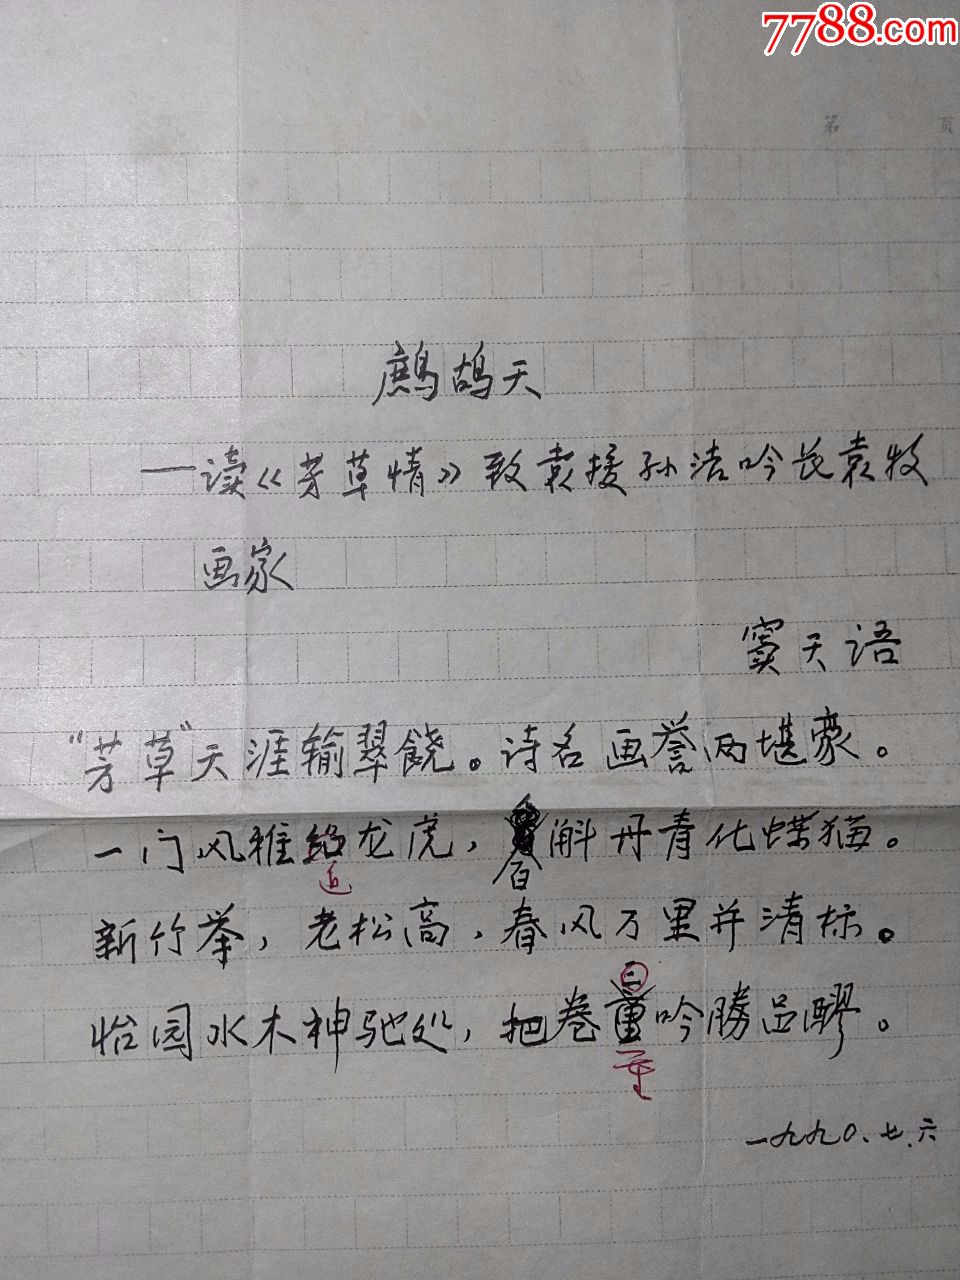 7788.com
第 页
鹧鸪天
——读《芳草情》致袁援孙洁吟长袁牧
画家
窦天语
“芳草”天涯输翠饶。诗名画誉两堪豪。
一门风雅 龙虎，百斛丹青化蝶猫。
迫
新竹举，老松高，春风万里并清标。
怡园水木神驰处，把卷 吟胜品醪。
三
重
一九九〇、七、六